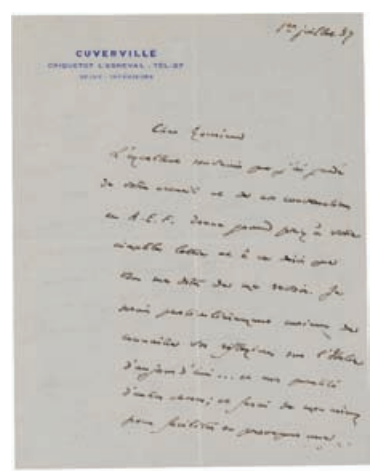 1er juillet 37
CUVERVILLE
CRIQUETOT L'ESNEVAL - TEL. 27
SEINE - INFÉRIEURE
Cher Monsieur
L'excellent souvenir que j'ai gardé
de votre accueil et de nos conversations
en A.E.F. donne grand prix à votre
aimable lettre et à ce désir que
vous me dites de me revoir. Je
serais particulièrement curieux de
connaître vos réflexions sur l'Italie
d'aujourd'hui ... et me
d'autre ; et ferai de mon mieux
pour faciliter ou